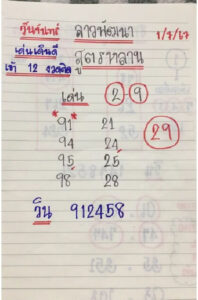 วันจันทร์ ลาวพัฒนา 1/7/67
เด่นเดินดี สูตรหลาน
เข้า 12 งวดติด
เด่น 2-9
91 21
94 24
95 25
98 28
29
วิน 912458